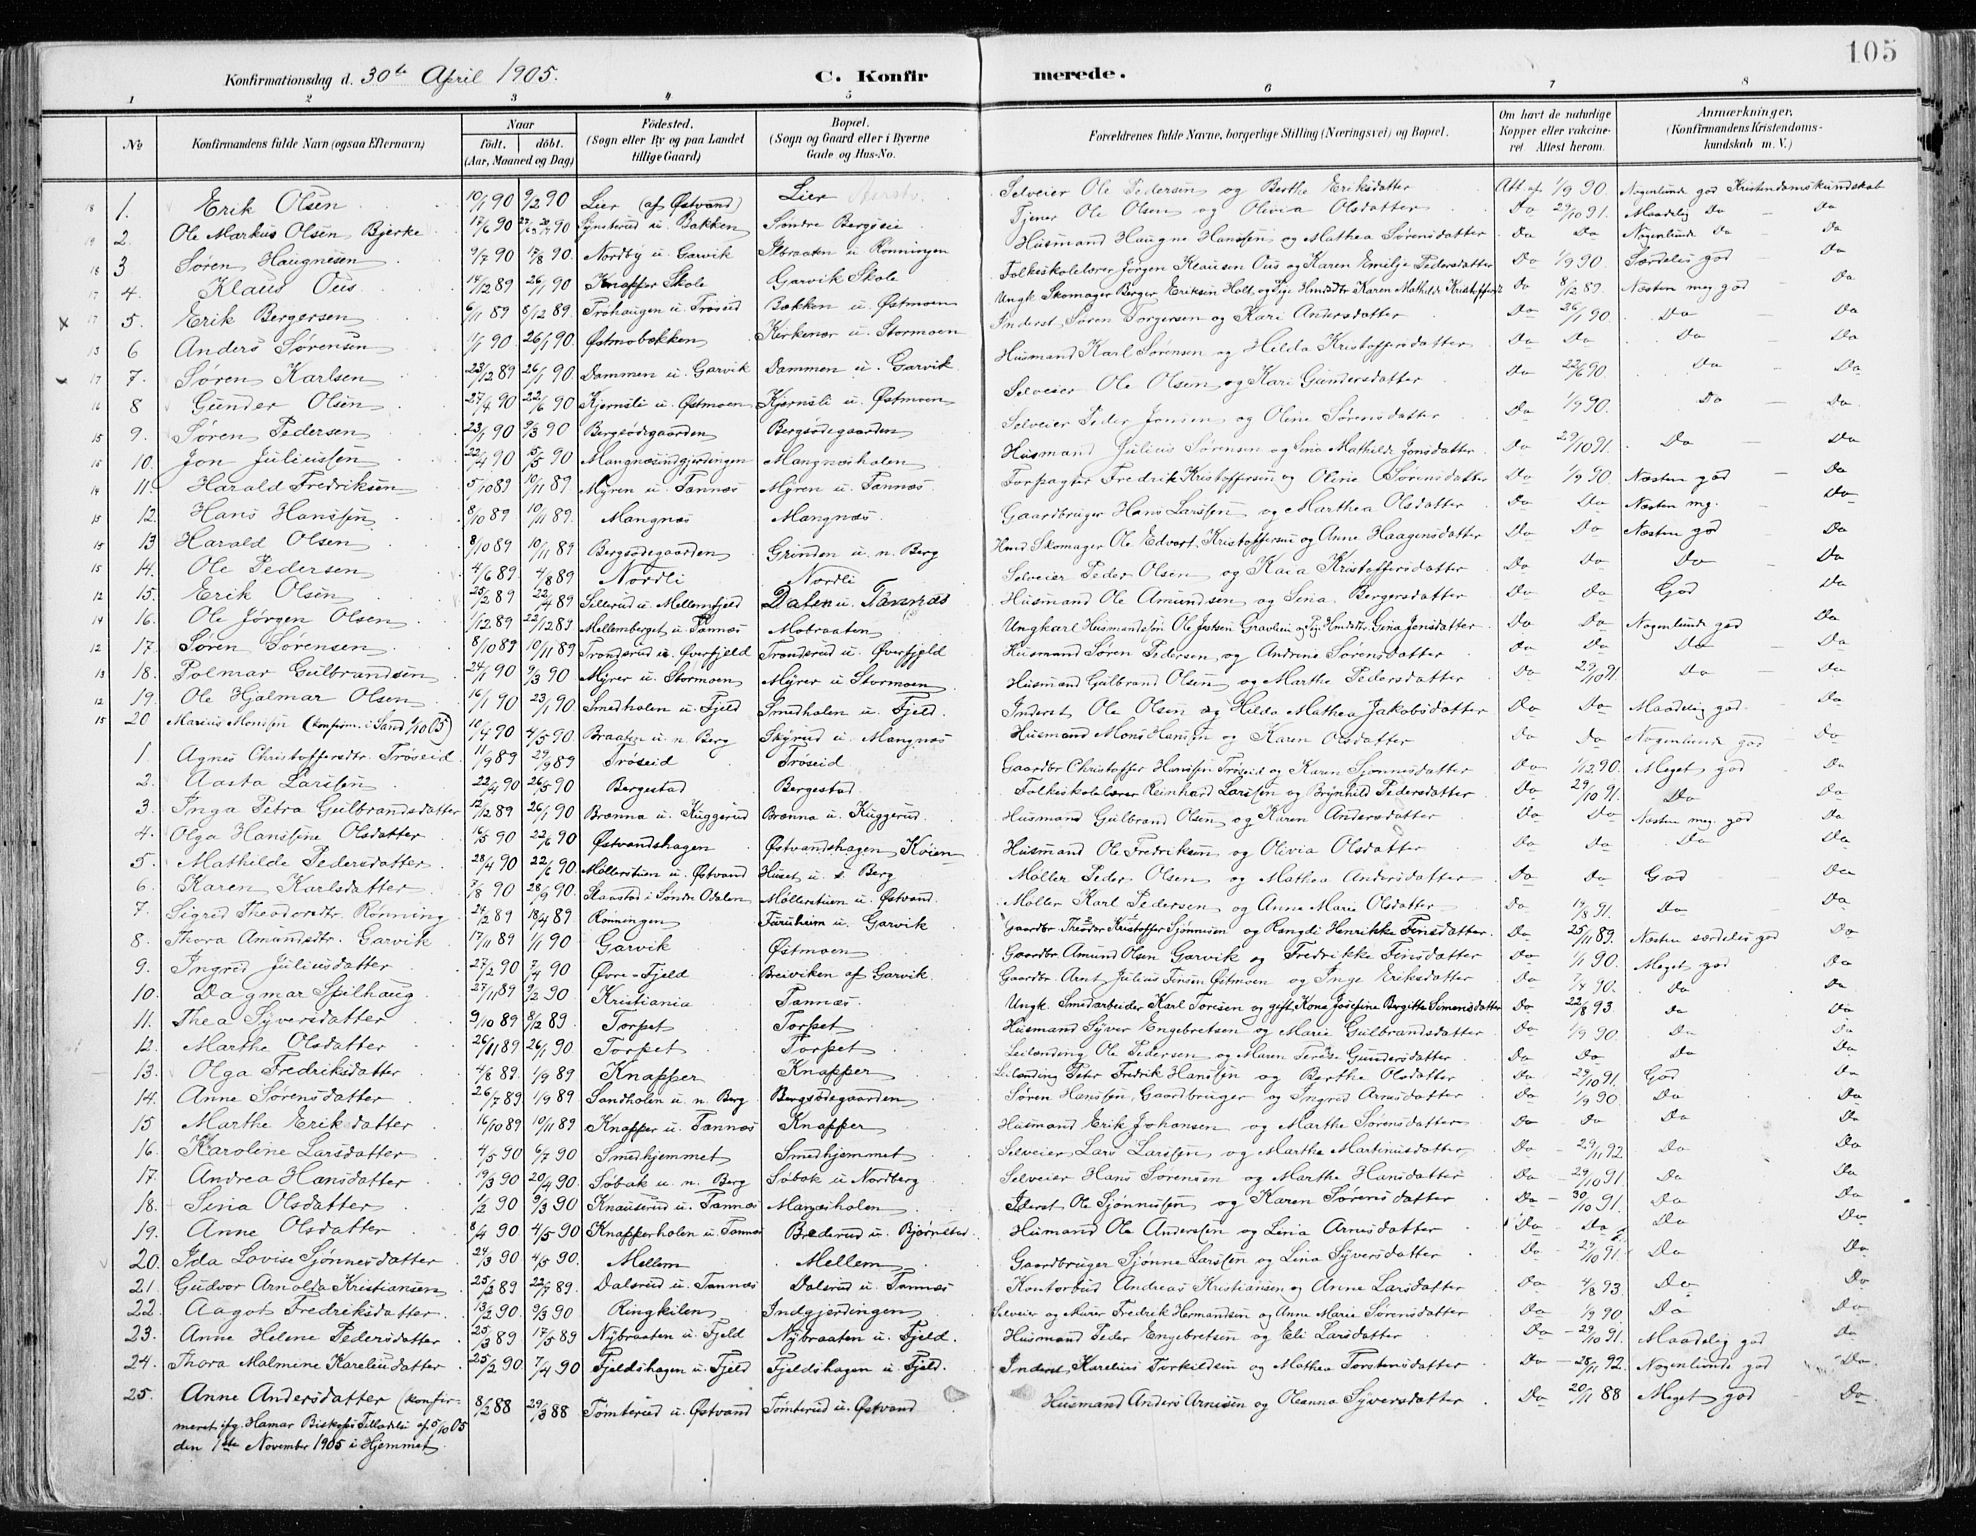 105
Konfirmationsdag d. 30te April 1905. C. Konfirmerede.
1 2 3 4 5 6 7 8
No Konfirmandens fulde Navn (ogsaa Efternavn) Naar født. døbt. (Aar, Maaned og Dag) Fødested. (Sogn eller By og paa Landet tillige Gaard) Bopæl. (Sogn og Gaard eller i Byerne Gade og Hus-No. Forældrenes fulde Navne, borgerlige Stilling (Næringsvei) og Bopæl. Om havt de naturlige Kopper eller vakcineret Attest herom. Anmærkninger. (Konfirmandens Kristendomskundskab m. V.)
18 1. Erik Olsen 10/1 90 9/2 90 Lier (af Østvand) Lier Selveier Ole Pedersen og Berthe Eriksdatter Att af 1/9 90. Nogenlunde god Kristendomskundskab
19 2 Ole Markus Olsen Bjerke 17/6 90 Synsterud u. Bakken Søndre Bergssie Tjener Ole Olsen og Olivia Olsdatter Do 29/10 91. Maadelig Do Do
18 3 Søren Haugnesen 9/7 90 17/8 90. Nordby u. Garvik Ibraaten u. Rønningen Husmand Haugne Hanssen og Mathea Sørensdatter Do Do Nogenlunde Do Do
17 4. Klaus Ous 14/12 89 26/1 90 Knapper Skole Garvik Skole Folkeskolelærer Jørgen Klausen Ous og Karen Emilje Pedersdatter Do 1/9 90. Særdeles god Do
x 17 5. Erik Bergersen 6/11 89 8/12 89. Trøhaugen u. Trøseid Bakken u. Østmoen Ungk. Skomager Berger Eriksen Holt og Pige Karen Mathilde Do 8/12 89. Næsten meg god Do
13 6 Anders Sørensen 1/1 90 26/1 90. Østmobækken Kirkenær u. Stormoen Inderst Søren Torgersen og Kari Andersdatter Do 26/1 90. Do Do
17 7. Søren Karlsen 23/12 89 26/1 90. Dammen u. Garvik Dammen u. Garvik Husmand Karl Sørensen og Helda Kristoffersdatter Do Do Do Do
16 8 Gunder Olsen 27/4 90 22/6 90 Kjernsli u. Østmoen Kjernsli u. Østmoen Selveier Ole Olsen og Kari Gundersdatter Do 22/6 90. Do Do
15 9. Søren Pedersen 23/1 90 9/3 90 Bergsødegaarden Bergsødegaarden Selveier Peder Jonsen og Oline Sørensdatter Do 1/9 90. Do Do
15 10. Jon Juliussen 22/4 90 15/5 90 Mangnæsindgjerdingen Mangnæsholen Husmand Julius Sørensen og Lina Mathilde Jonsdatter Do 29/10 91. Do Do
14 11. Harald Fredriksen 5/10 89 10/11 89. Myren u. Tannæs Myren u. Tannæs Forpagter Fredrik Kristoffersen og Oline Sørensdatter Do 1/9 90. Næsten god Do
15 12. Hans Hanssen 8/10 89 10/11 89. Mangnæs Mangnæs Gaardbruger Hans Larssen og Marthea Olsdatter Do Do Næsten mg. Do
15 13 Harald Olsen 8/10 89 10/11 89 Bergsødegaarden Grinden u. n. Berg Hmd Skomager Ole Edvart Kristoffersen og Anne Haagensdatter Do Do Næsten god Do
15 14. Ole Pedersen 4/6 89 4/8 89 Nordli Nordli Selveier Peder Olsen og Kaia Kristoffersdatter Do Do Do Do
12 15. Erik Olsen 25/2 89 22/4 89 Sillerud u. Mellemfjeld Dalen u. Tannæs Husmand Ole Amundsen og Lina Bergersdatter Do Do God Do
14 16. Ole Jørgen Olsen 1/12 89 22/12 89 Mellemberget u. Tannæs Mobraaten Ungkarl Husmandssøn Ole Jensen og Gina Jensdatter Do Do Nogenlunde god Do
12 17. Søren Sørensen 8/10 89 10/11 89 Trondsrud u. Øverfjeld Trondsrud u. Øverfjeld Husmand Søren Pedersen og Andrine Sørensdatter Do Do Do Do
13 18. Polmar Gulbrandsen 24/1 90 9/3 90 Myrer u. Stormoen Myrer u. Stormoen Husmand Gulbrand Olsen og Marthe Pedersdatter Do 29/10 91 Do Do
12 19. Ole Hjalmar Olsen 16/1 90 23/1 90 Smedholen u. Fjeld Smedholen u. Fjeld. Inderst Ole Olsen og Hilda Mathea Jakobsdatter Do Do Maadelig god. Do
15 20 Marius Monssen (konfirm. i Sand 1/10 05) 10/4 90 4/5 90 Braaten u. n. Berg Skyrud u. Mangnæs Husmand Mons Hanssen og Karen Olsdatter Do Do Nogenlunde god Do
1. Agnes Christoffersdtr. Trøseid 11/9 89 29/9 89 Trøseid Trøseid Gaardbr Christoffer Hanssen Trøseid og Karen Sjønnesdatter Do 1/12 90. Meget god Do
2. Aasta Larssen 22/4 90 26/5 90 Bergestad Bergestad Folkeskolelærer Reinhard Larssen og Brynhild Pedersdatter Do 29/10 91. Do Do
3. Inga Petra Gulbrandsdatter 12/12 89 26/1 90 Brænna u. Kuggerud Brænna u. Kuggerud. Husmand Gulbrand Olsen og Karen Andersdatter Do Do Næsten meg. god Do
4. Olga Hanssine Olsdatter 16/5 90 22/6 90 Østvandshagen Østvandshagen Køien Husmand Ole Fredriksen og Olivia Olsdatter Do Do Do Do
5. Mathilde Pedersdatter 28/4 90 22/6 90. Møllerstien u. Østvand Huset u. s. Berg Møller Peder Olsen og Mathea Andersdatter Do Do God Do
6. Karen Karlsdatter 7/8 90 28/9 90. Haastad i Søndre Odalen Møllerstuen u. Østvand. Møller Karl Pedersen og Anne Marie Olsdatter Do 17/8 91. Do Do
7. Sigrid Theodorsdtr. Rønning 24/2 89 18/4 89 Rønningen Furuheim u. Garvik Gaardbr Theodor Kristoffer Sjønnesen og Rangdi Henrikke Finsdatter. Do 25/11 89. Næsten særdeles god Do
8. Thora Amundsdtr. Garvik 17/11 89 1/1 90 Garvik Østmoen Gaardbr Amund Olsen Garvik og Fredrikke Finsdatter Do 1/1 90. Meget god Do
9. Ingrid Juliusdatter 27/2 90 7/4 90 Øvre-Fjeld Breiviken af Garvik Gaardbr. Arnt Julius Jensen Østmoen og Inge Eriksdatter Do 7/4 90. Do Do
10. Dagmar Spilhaug 27/11 89 9/2 90 Kristiania Tannæs Ungk. Smedarbeider Karl Toresen og gift Kone Josefine Birgitte Simensdatter Do 22/8 93 Do Do
11. Thea Syversdatter 9/10 89 8/12 89. Torpet Torpet Husmand Syver Engebretsen og Marie Gulbrandsdatter Do 1/9 90. Do Do
12. Marthe Olsdatter 26/11 89 26/1 90 Torpet Torpet Leilænding Ole Pedersen og Maren Terese Gundersdatter Do Do Do Do
13. Olga Fredriksdatter 4/8 89. 1/9 89 Knapper Knapper Leilænding Peter Fredrik Hanssen og Berthe Olsdatter Do 29/10 91. God Do
14. Anne Sørensdatter 26/7 89 1/9 89 Sandholen u. n. Berg Bergsødegaarden Søren Hanssen, Gaardbruger og Ingrid Arnesdatter Do 1/9 90. Do Do
15 Marthe Eriksdatter 16/10 89 10/11 89 Knapper u. Tannæs Knapper Husmand Erik Johansen og Marthe Sørensdatter Do Do Do Do
16. Karoline Larsdatter 4/5 90 6/7 90 Smedhjemmet Smedhjemmet Selveier Lars Larssen og Marthe Martinusdatter Do 29/11 92. Do Do
17. Andrea Hansdatter 19/3 90 20/4 90 Søbak u. n. Berg Søbak u Nordberg Selveier Hans Sørensen og Marthe Hansdatter Do 29/10 91 Do Do
18. Lina Olsdatter 1/2 90 9/3 90 Knauserud u. Tannæs Mangæsholen Iderst Ole Sjønnessen og Karen Sørensdatter Do 30/10 91. Do Do
19. Anne Olsdatter 8/4 90 4/5 90 Knapperholen u. Tannæs Brederud u. Bjørnstad Husmand Ole Anderssen og Lina Arnesdatter Do Do Do Do
20. Ida Lovise Sjønnesdatter 24/3 90 4/5 90. Mellem Mellem Gaardbruger Sjønne Larssen og Lina Syversdatter Do 29/10 91 Do Do
21. Gudvor Arnolda Kristiansen 25/5 89 22/7 89 Dalsrud u. Tannæs Dalsrud u. Tannæs Kontorbud Andreas Kristiansen og Anne Larsdatter Do 4/8 93. Do Do
22. Aagot Fredriksdatter 13/2 90. 9/3 90 Ringkilen Indgjerdingen Selveier og Murer Fredrik Hermandsen og Anne Marie Sørensdatter Do 1/9 90 Do Do
23. Anne Helene Pedersdatter 25/3 89 17/5 89 Nybraaten u. Fjeld Nybraaten u. Fjeld. Husmand Peder Engebretsen og Eli Larsdatter Do 29/10 91. Maadelig god Do
24. Thora Malmine Kareliusdatter 25/2 90 7/4 90 Fjeldshagen u. Fjeld Fjeldshagen u. Fjeld. Inderst Karelius Torkildsen og Mathea Torstensdatter Do 28/11 92. Nogenlunde god Do
25. Anne Andersdatter (konfir- 8/2 88 29/3 88 Tomterud u. Østvand Tomterud u. Østvand Husmand Anders Arnesen og Oleanna Syversdatter Do 20/1 88 Meget god Do
meret ifg. Hamar Biskops Tilladelse af 5/10 05
den 1ste November 1905 i Hjemmet.